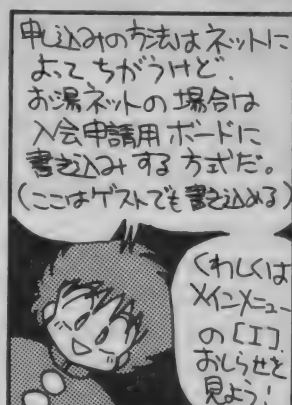 申し込みの方法はネットに
よって ちがうけど.
お湯ネットの 場合は
入会申請用 ボードに
書き込み する 方式だ。
(ここはゲストでも 書き込める)
くわしくは
メインメニュー
の [I]
おしらせを
見よう!